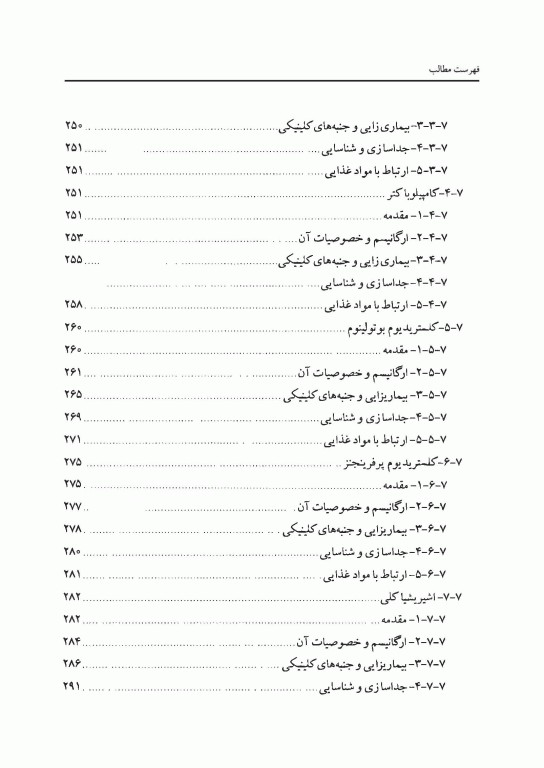 فهرست مطالب
۷-۳-۳-بیماری زایی و جنبه‌های کلینیکی ۲۵۰
۷-۳-۴-جداسازی و شناسایی ۲۵۱
۷-۳-۵- ارتباط با مواد غذایی ۲۵۱
۷-۴-کامپیلوباکتر ۲۵۱
۷-۴-۱- مقدمه ۲۵۱
۷-۴-۲- ارگانیسم و خصوصیات آن ۲۵۳
۷-۴-۳-بیماری زایی و جنبه‌های کلینیکی ۲۵۵
۷-۴-۴-جداسازی و شناسایی
۷-۴-۵- ارتباط با مواد غذایی ۲۵۸
۷-۵-کلستریدیوم بوتولینوم ۲۶۰
۷-۵-۱- مقدمه ۲۶۰
۷-۵-۲- ارگانیسم و خصوصیات آن ۲۶۱
۷-۵-۳- بیماریزایی و جنبه‌های کلینیکی ۲۶۵
۷-۵-۴-جداسازی و شناسایی ۲۶۹
۷-۵-۵- ارتباط با مواد غذایی ۲۷۱
۷-۶-کلستریدیوم پرفرینجنز ۲۷۵
۷-۶-۱- مقدمه ۲۷۵
۷-۶-۲- ارگانیسم و خصوصیات آن ۲۷۷
۷-۶-۳- بیماریزایی و جنبه‌های کلینیکی ۲۷۸
۷-۶-۴-جداسازی و شناسایی ۲۸۰
۷-۶-۵- ارتباط با مواد غذایی ۲۸۱
۷-۷- اشیریشیا کلی ۲۸۲
۷-۷-۱- مقدمه ۲۸۲
۷-۷-۲- ارگانیسم و خصوصیات آن ۲۸۴
۷-۷-۳- بیماریزایی و جنبه‌های کلینیکی ۲۸۶
۷-۷-۴-جداسازی و شناسایی ۲۹۱